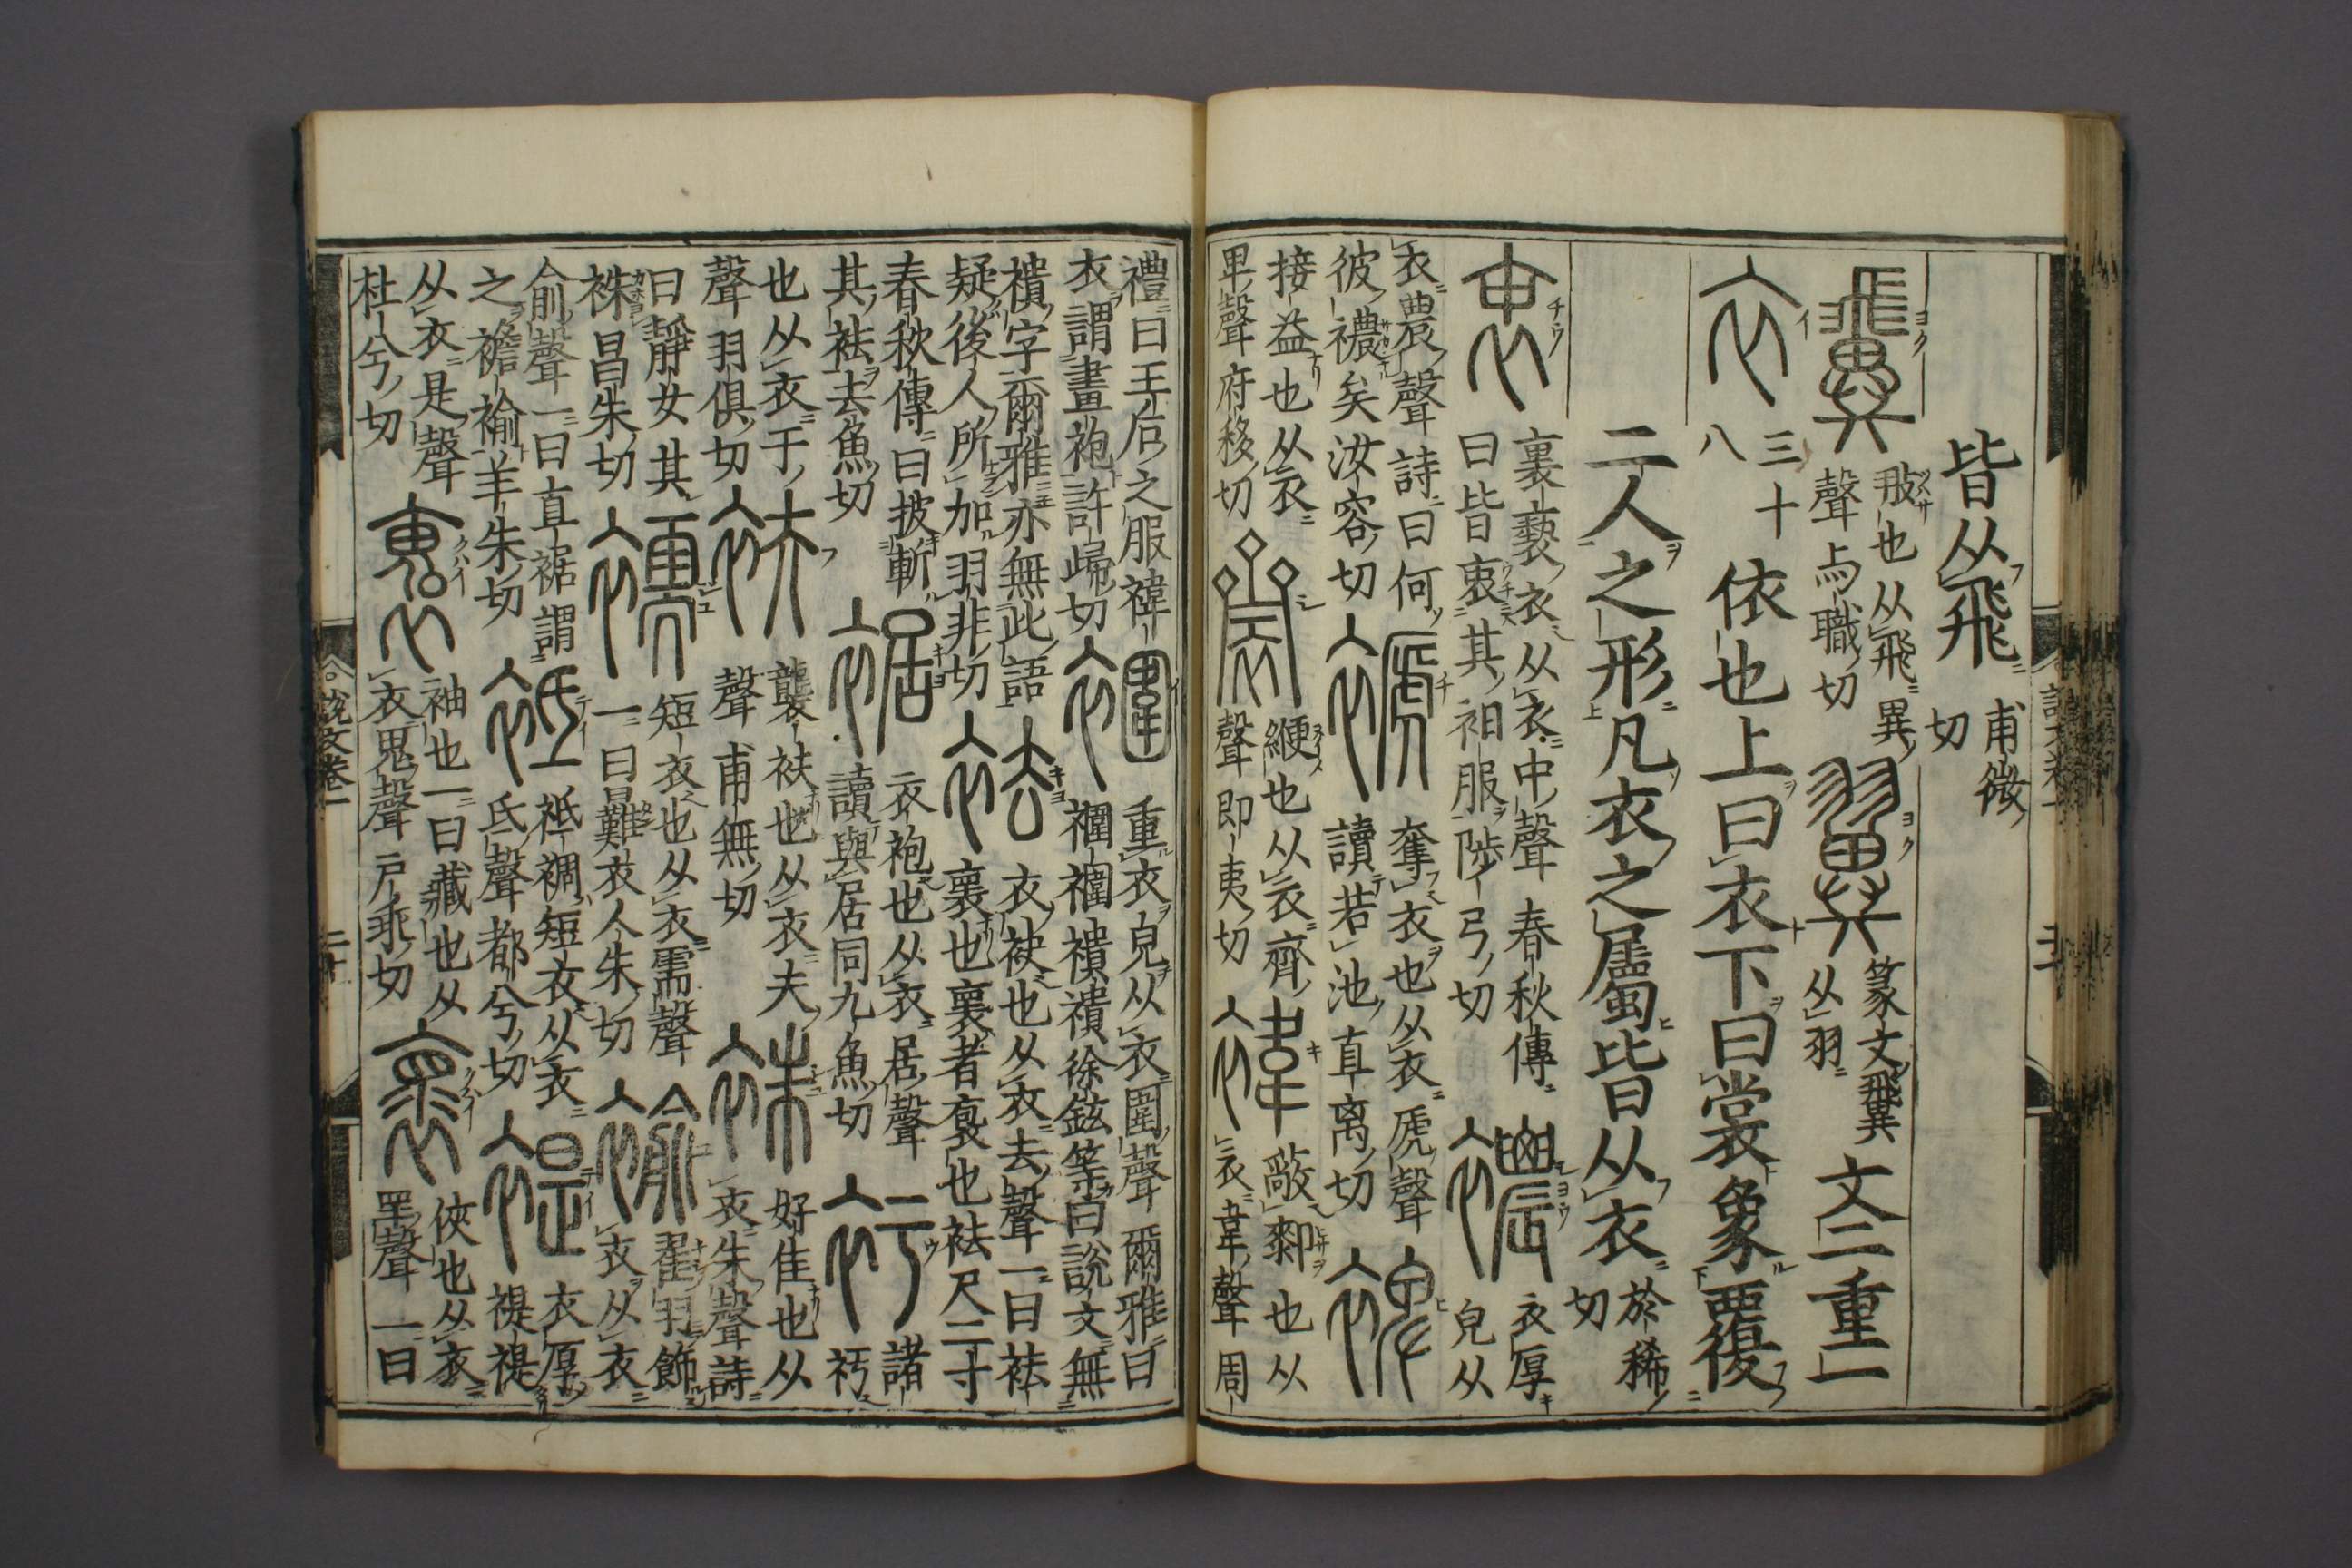 皆从飛甫微切
𩙺翄也从飛異聲與職切翼篆文𩙺从羽文二重一
衣三十八依也上曰衣下曰裳象覆
二人之形凡衣之屬皆从衣於稀切
衷裏褻衣从衣中聲春秋傳曰皆衷其衵服陟弓切襛衣厚皃从
衣農聲詩曰何彼襛矣汝容切褫奪衣也从衣虒聲讀若池直离切裨
接益也从衣卑聲府移切齌緶也从衣齊聲即夷切褘蔽厀也从衣韋聲周
禮曰王后之服褘衣謂畫袍許歸切𧝕重衣皃从衣圍聲爾雅曰𧝕𧝕襀襀徐鉉等曰說文無
襀字爾雅亦無此語疑後人所加羽非切袪衣袂也从衣去聲一曰袪裹也裹者褱也袪尺二寸
春秋傳曰披斬其袪去魚切裾衣袍也从衣居聲讀與居同九魚切衧諸衧
也从衣于聲羽俱切衭襲衭也从衣夫聲甫無切袾好佳也从衣朱聲詩
曰靜女其袾昌朱切襦短衣也从衣需聲一曰㬮衣人朱切褕翟羽飾衣从衣
俞聲一曰直裾謂之襜褕羊朱切袛袛裯短衣从衣氐聲都兮切褆衣厚褆褆
从衣是聲杜兮切褢袖也一曰藏也从衣鬼聲戶乖切褱俠也从衣眔聲一曰
說文卷一
二十